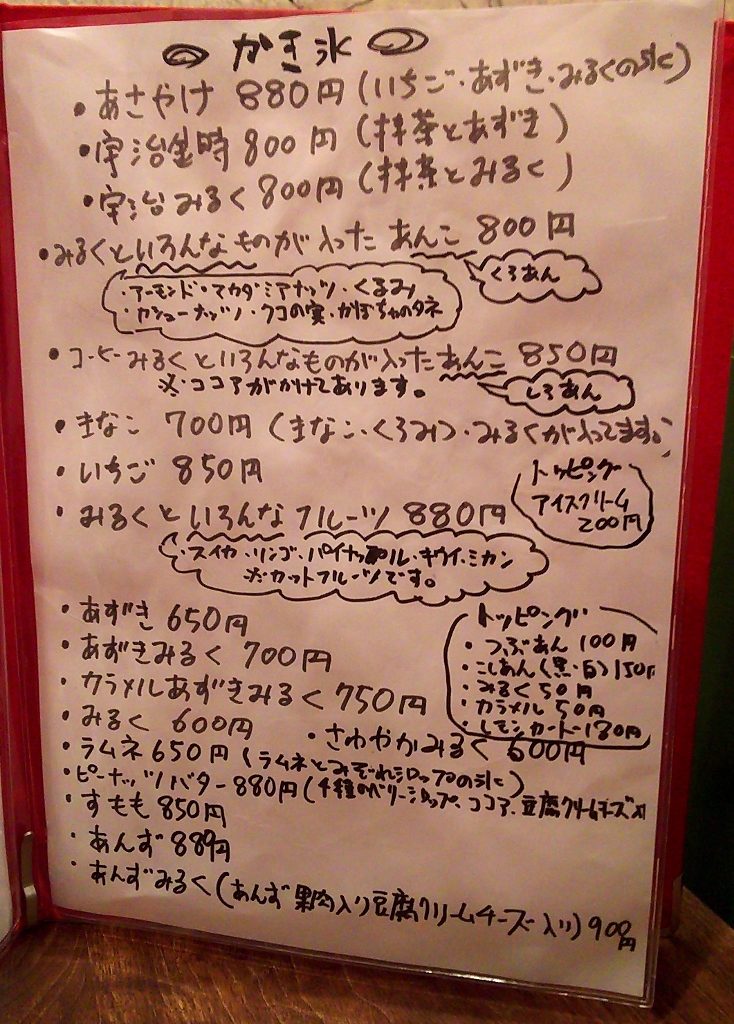 かき氷
・あさやけ 880円(いちご・あずき・みるくの氷)
・宇治金時 800円(抹茶とあずき)
・宇治みるく 800円(抹茶とみるく)
・みるくといろんなものが入ったあんこ 800円
くろあん
・アーモンド・マカダミアナッツ・くるみ
・カシューナッツ・クコの実・かぼちゃのタネ
・コーヒーみるくといろんなものが入ったあんこ 850円
※ココアがかけてあります。
しろあん
・きなこ 700円(きなこ・くろみつ・みるくが入ってます。)
・いちご 850円
トッピング
アイスクリーム
200円
・みるくといろんなフルーツ 880円
・スイカ・リンゴ・パイナップル・キウイ・ミカン
※カットフルーツです。
・あずき 650円
・あずきみるく 700円
・カラメルあずきみるく 750円
・みるく 600円
トッピング
・つぶあん 100円
・こしあん(黒・白)150円
・みるく 50円
・カラメル 50円
・レモンカード 130円
・さわやかみるく 600円
・ラムネ 650円(ラムネとみぞれシロップの氷)
・ピーナッツバター 880円(4種のベリーシロップ、ココア、豆腐クリームチーズ入り
・すもも 850円
・あんず 889円
・あんずみるく(あんず果肉入り豆腐クリームチーズ入り)900円